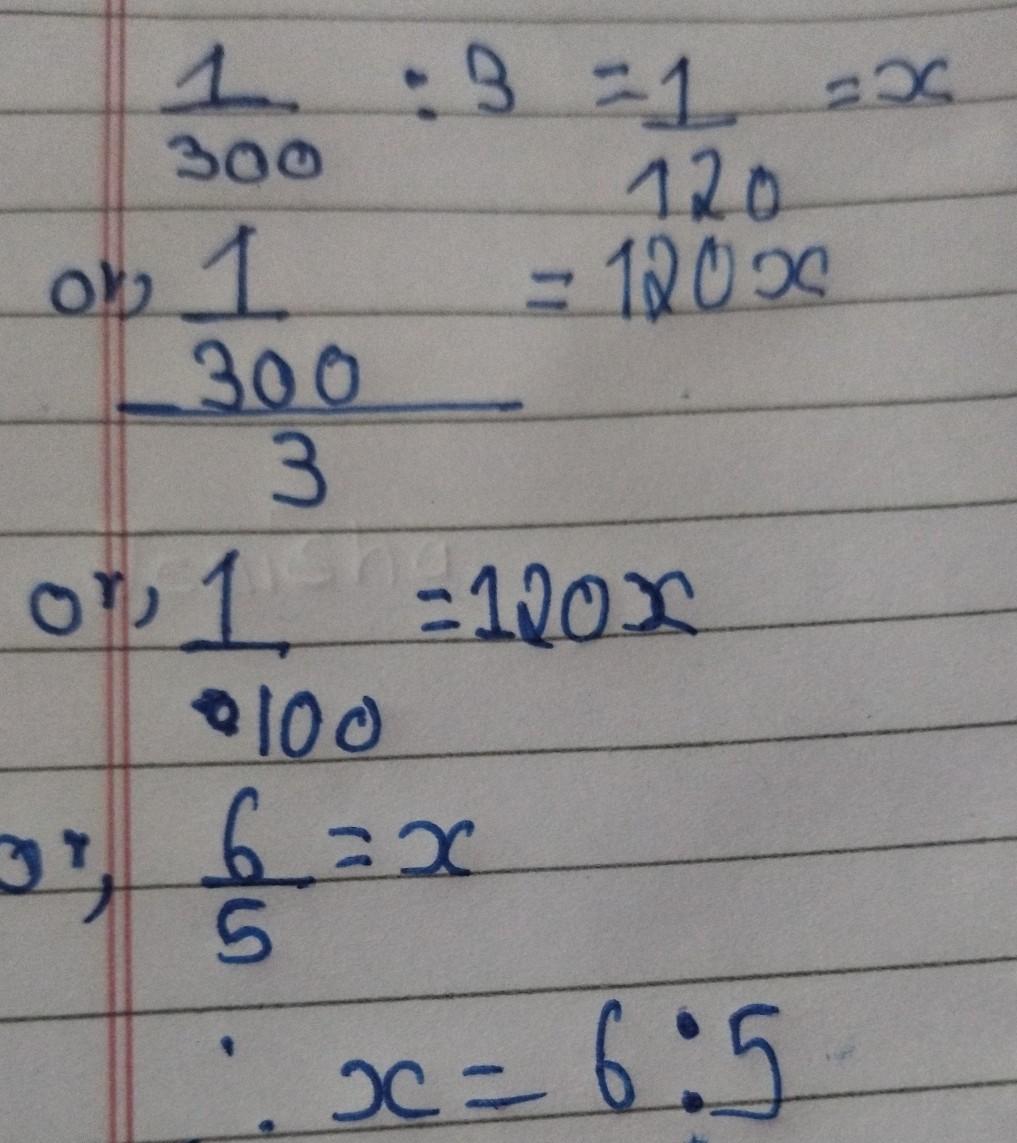 1/300 : 3 = 1/120 = x
or, 1/300/3 = 120x
or, 1/100 = 120x
or, 6/5 = x
∴ x = 6:5